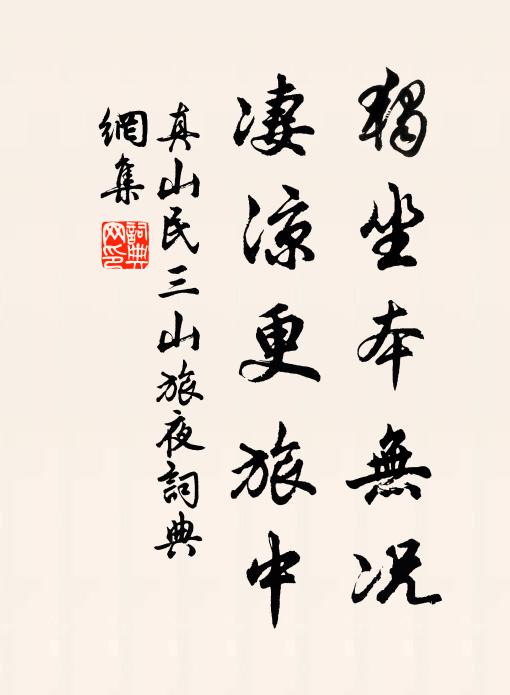 獨坐本無況
凄涼更旅中
真山民三山旅夜詞典
網集
詞典
网印